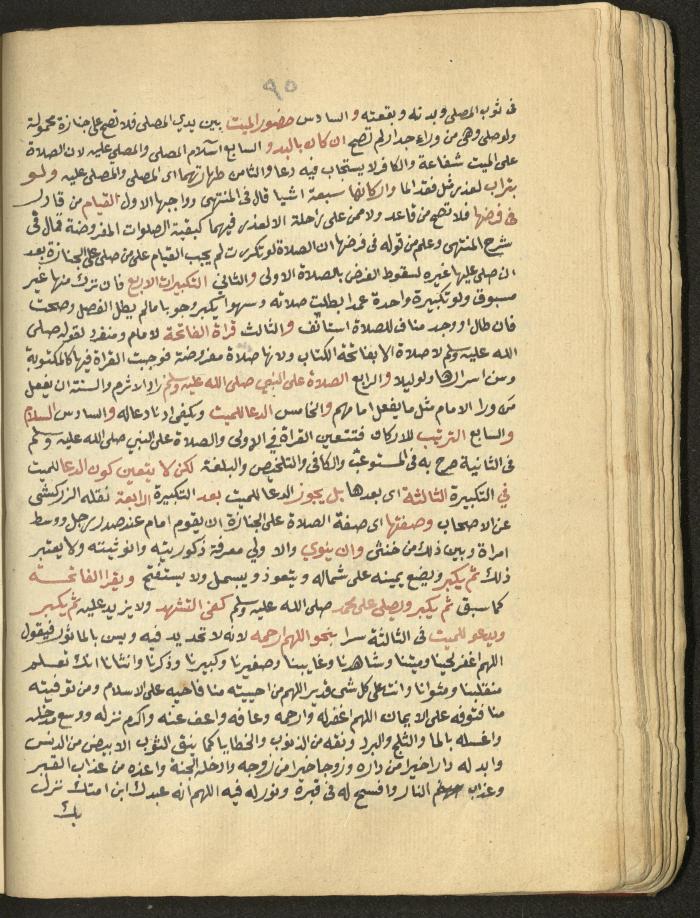 ٩٥
فى ثوب المصلى وبدنه وبقعته والسادس حضور الميت بين يدي المصلى فلا تصح على جنازة محمولة
ولو صلى وهى من وراء جدار لم تصح ان كان بالبلد والسابع اسلام المصلى والمصلى عليه لان الصلاة
على الميت شفاعة والكافر لا يستجاب فيه دعا والثامن طهارتهما اى المصلى والمصلى عليه ولو
بتراب لعذر مثل فقد الما واركانها سبعة اشيا قال فى المنتهى وواجبها الاول القيام من قادر
فى فرضها فلا تصح من قاعد ولا ممن على راحلة الا لعذر فيهما كبقية الصلوات المفروضة قال فى
شرح المنتهى وعلم من قوله فى فرضها ان الصلاة لو تكررت لم يجب القيام على من صلى على الجنازة بعد
ان صلى عليها غيره لسقوط الفرض بالصلاة الاولى والثاني التكبيرات الاربع فان ترك منها غير
مسبوق ولو تكبيرة واحدة عمدا بطلت صلاته وسهوا يكبر وجوبا ما لم يطل الفصل وصحت
فان طال او وجد مناف للصلاة استانف والثالث قراة الفاتحة لامام ومنفرد لقوله صلى
الله عليه وسلم لا صلاة الا بفاتحة الكتاب ولانها صلاة مفروضة فوجبت القراة فيها كالمكتوبة
وسن اسرارها ولو ليلا والرابع الصلاة على النبي صلى الله عليه وسلم زاد الاثرم والسنة ان يفعل
من ورا الامام مثل ما يفعل امامهم والخامس الدعا للميت ويكفى ادنا دعا له والسادس السلام
والسابع الترتيب للاركان فتتعين القراة في الاولى والصلاة على النبي صلى الله عليه وسلم
فى الثانية صرح به فى المستوعب والكافى والتلخيص والبلغة لكن لا يتعين كون الدعا للميت
في التكبيرة الثالثة اى بعدها بل يجوز الدعا للميت بعد التكبيرة الرابعة نقله الزركشى
عن الاصحاب وصفتها اى صفة الصلاة على الجنازة ان يقوم امام عند صدر رجل ووسط
امراة وبين ذلك من خنثى وان ينوي والاولي معرفة ذكوريته وانوثيته ولا يعتبر
ذلك ثم يكبر ويضع يمينه على شماله ويتعوذ ويبسمل ولا يستفتح ويقرا الفاتحة
كما سبق ثم يكبر ويصلى على محمد صلى الله عليه وسلم كفى التشهد ولا يزيد عليه ثم يكبر
ويدعو للميت فى الثالثة سرا بنحو اللهم ارحمه لانه لا تحديد فيه وسن بالماثور فيقول
اللهم اغفر لحينا وميتنا وشاهدنا وغايبنا وصغيرنا وكبيرنا وذكرنا وانثانا انك تعلم
منقلبنا ومثوانا وانت على كل شى قدير اللهم من احييته منا فاحيه على الاسلام ومن توفيته
منا فتوفه على الايمان اللهم اغفر له وارحمه وعافه واعف عنه واكرم نزله ووسع مدخله
واغسله بالما والثلج والبرد ونقه من الذنوب والخطايا كما ينقى الثوب الابيض من الدنس
وابدله دارا خيرا من داره وزوجا خيرا من زوجه وادخله الجنة واعذه من عذاب القبر
وعذاب النار وافسح له فى قبره ونور له فيه اللهم انه عبدك ابن امتك نزل
بك